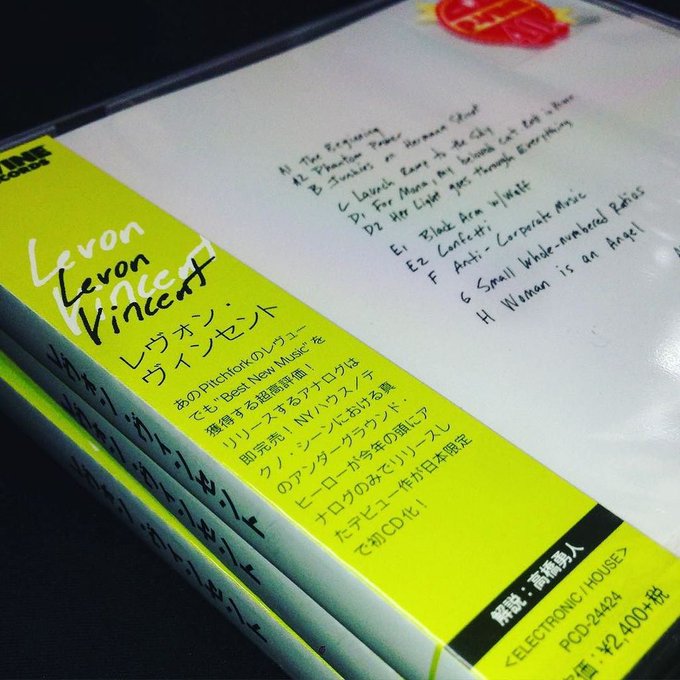 A1 The Beginning
A2 Phantom Power
B Junkies on Hermann Street
C Launch Ramp to the Sky
D1 For Mona, my beloved cat. Rest in Peace
D2 Her Light goes through Everything
E1 Black Arm w/Wolf
E2 Confetti
F Anti-Corporate Music
G Small Whole-numbered Ratios
H Woman is an Angel
Levon
Vincent
Levon
Vincent
レヴォン・
ヴィンセント
あのPitchforkのレヴュー
でも"Best New Music"を
獲得する超高評価!
リリースするアナログは
即完売!NYハウス/テ
クノ・シーンにおける真
のアンダーグラウンド・
ヒーローが今年の頭にア
ナログのみでリリースし
たデビュー作が日本限定
で初CD化!
解説:高橋勇人
<ELECTRONIC / HOUSE>
PCD-24424
定価:¥2,400+税
レヴォン・ヴィンセント
レヴォン・ヴィンセント
レヴォン・ヴィンセント